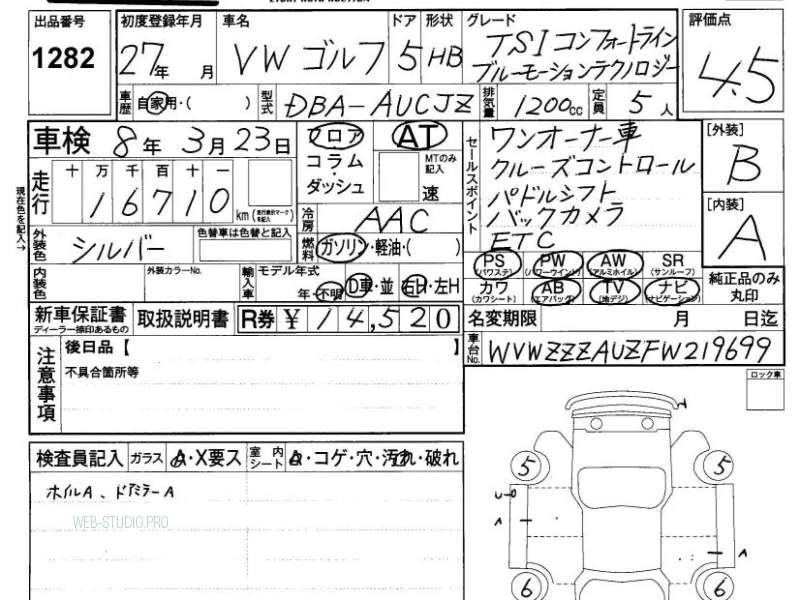 出品番号
1282
初度登録年月 車名 ドア 形状 グレード 評価点
27年 月 VW ゴルフ 5 HB TSI コンフォートライン
ブルーモーションテクノロジー
4.5
車歴 自家用・( ) 型式 DBA-AUCJZ 排気量 1200cc 定員 5人
車検 8年 3月 23日
フロア
コラム
・
ダッシュ
AT
MTのみ記入
速
セールスポイント
ワンオーナー車
クルーズコントロール
パドルシフト
バックカメラ
ETC
[外装]
B
[内装]
A
現在色を記入→
走行 十 万 千 百 十 一
16710 km (走行表示マークを記入)
冷房 AAC
外装色 シルバー 色替車は色替と記入
燃料 ガソリン・軽油・( )
内装色 外装カラーNo. 輸入車 モデル年式
年・不明 D車・並 右H・左H
PS (パワステ) PW (パワーウインド) AW (アルミホイル) SR (サンルーフ)
カワ (カワシート) AB (エアバック) TV (地デジ) ナビ (ナビゲーション)
純正品のみ
丸印
新車保証書 取扱説明書 R券 ¥ 14,520
ディーラー捺印あるもの
名変期限 月 日迄
車台No. WVWZZZAUZFW219699
注意事項
後日品【 】
不具合箇所等
ロック車
検査員記入 ガラス A・X要ス 室内シート A・コゲ・穴・汚れ・破れ
ホイルA、ドアミラーA
WEB-STUDIO.PRO
5 5
U-D
A A
6 6